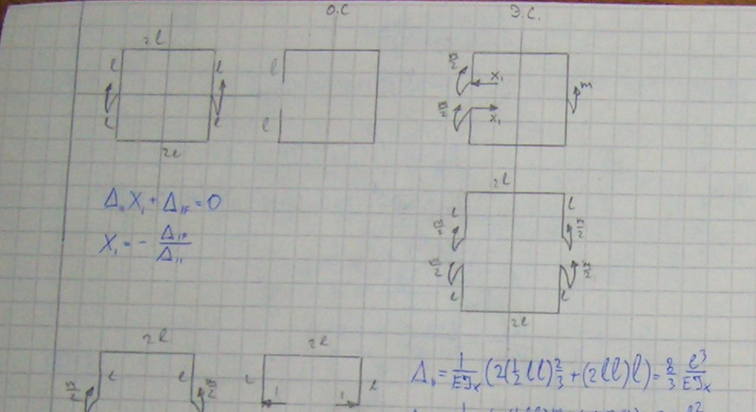 О.С Э.С.
2l
l l
l l
2l
l
l
m/2
X₁
m
m/2
X₁
Δ₁₁X₁ + Δ₁F = 0
X₁ = - Δ₁F/Δ₁₁
2l
l l
m/2 m/2
m/2 m/2
l l
2l
2l
l l
m/2 m/2
2l
l l
1 1
Δ₁₁ = 1/EJₓ (2(1/2 ll)2/3 + (2ll)l) = 8/3 l³/EJₓ